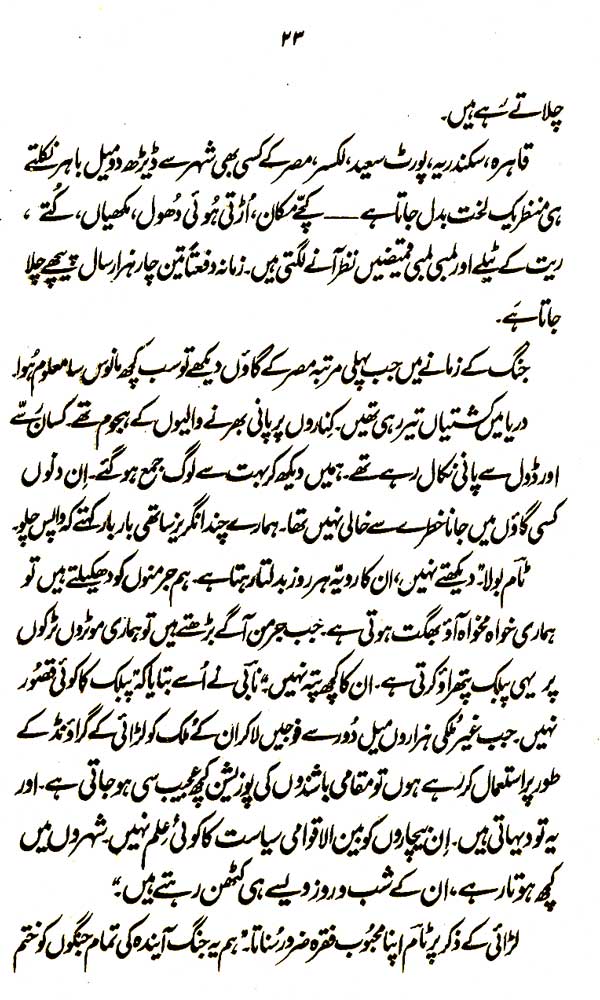 ۲۳
چلاتے رہے ہیں۔
قاہرہ، سکندریہ، پورٹ سعید، لکسر، مصر کے کسی بھی شہر سے ڈیڑھ دو میل باہر نکلتے
ہی منظر یک لخت بدل جاتا ہے —— کچے مکان، اُڑتی ہُوئی دُھول، مکھیاں، کُتّے ،
ریت کے ٹیلے اور لمبی لمبی قمیضیں نظر آنے لگتی ہیں۔ زمانہ دفعتاً تین چار ہزار سال پیچھے چلا
جاتا ہے۔
جنگ کے زمانے میں جب پہلی مرتبہ مصر کے گاؤں دیکھے تو سب کچھ مانوس سا معلوم ہُوا۔
دریا میں کشتیاں تیر رہی تھیں۔ کناروں پر پانی بھرنے والیوں کے ہجوم تھے کسان رسّے
اور ڈول سے پانی نکال رہے تھے۔ ہمیں دیکھ کر بہت سے لوگ جمع ہو گئے۔ اِن دنوں
کسی گاؤں میں جانا خطرے سے خالی نہیں تھا۔ ہمارے چند انگریز ساتھی بار بار کہتے کہ واپس چلو۔
ٹام بولا۔ "دیکھتے نہیں، ان کا رویّہ ہر روز بدلتا رہتا ہے۔ ہم جرمنوں کو دھکیلتے ہیں تو
ہماری خواہ مخواہ آؤ بھگت ہوتی ہے۔ جب جرمن آگے بڑھتے ہیں تو ہماری موٹروں ٹرکوں
پر یہی پبلک پتھراؤ کرتی ہے۔ ان کا کچھ پتہ نہیں۔" نابی نے اُسے بتایا کہ "پبلک کا کوئی قصُور
نہیں۔ جب غیر مُلکی ہزاروں میل دُور سے فوجیں لا کر ان کے مُلک کو لڑائی کے گراؤنڈ کے
طور پر استعمال کر رہے ہوں تو مقامی باشندوں کی پوزیشن کچھ عجیب سی ہو جاتی ہے۔ اور
یہ تو دیہاتی ہیں۔ اِن بیچاروں کو بین الاقوامی سیاست کا کوئی عِلم نہیں۔ شہروں میں
کچھ ہوتا رہے، ان کے شب و روز ویسے ہی کٹھن رہتے ہیں۔"
لڑائی کے ذکر پر ٹام اپنا محبُوب فقرہ ضرور سُناتا۔ "ہم یہ جنگ آیندہ کی تمام جنگوں کو ختم